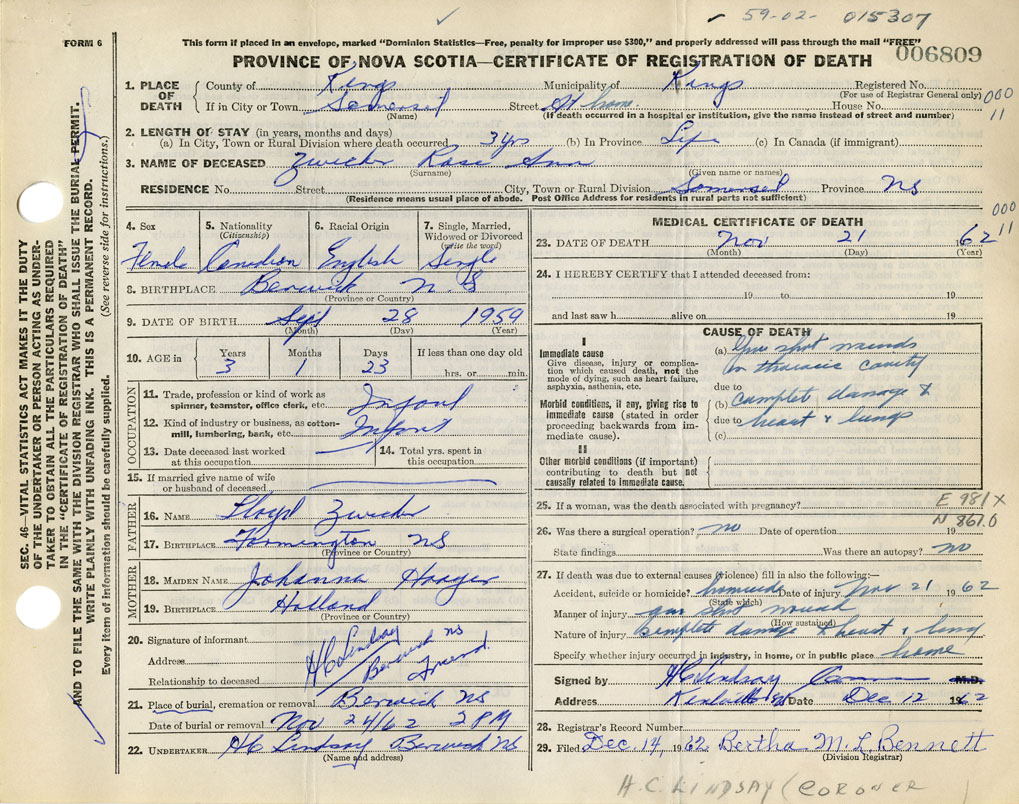 ✓ 59-02- 015307
FORM 6
This form if placed in an envelope, marked "Dominion Statistics—Free, penalty for improper use $300," and properly addressed will pass through the mail "FREE"
PROVINCE OF NOVA SCOTIA—CERTIFICATE OF REGISTRATION OF DEATH 006809
1. PLACE OF DEATH County of Kings Municipality of Kings Registered No.
(For use of Registrar General only) 000
If in City or Town Somerset Street At home House No. 11
(Name) (If death occurred in a hospital or institution, give the name instead of street and number)
2. LENGTH OF STAY (in years, months and days)
(a) In City, Town or Rural Division where death occurred 3 yrs (b) In Province Life (c) In Canada (if immigrant)
3. NAME OF DECEASED Zwicker Rose Ann
(Surname) (Given name or names)
RESIDENCE No. Street City, Town or Rural Division Somerset Province NS
(Residence means usual place of abode. Post Office Address for residents in rural parts not sufficient)
4. Sex 5. Nationality 6. Racial Origin 7. Single, Married,
(Citizenship) Widowed or Divorced
(write the word)
Female Canadian English Single
8. BIRTHPLACE Berwick N.S
(Province or Country)
9. DATE OF BIRTH Sept 28 1959
(Month) (Day) (Year)
10. AGE in Years Months Days If less than one day old
3 1 23 hrs. or min.
OCCUPATION
11. Trade, profession or kind of work as
spinner, teamster, office clerk, etc. Infant
12. Kind of industry or business, as cotton-
mill, lumbering, bank, etc. Infant
13. Date deceased last worked 14. Total yrs. spent in
at this occupation this occupation
15. If married give name of wife
or husband of deceased
FATHER
16. NAME Lloyd Zwicker
17. BIRTHPLACE Farmington NS
(Province or Country)
MOTHER
18. MAIDEN NAME Johanna Haager
19. BIRTHPLACE Holland
(Province or Country)
20. Signature of informant HC Lindsay
Address Berwick NS
Relationship to deceased Friend
21. Place of burial, cremation or removal Berwick NS
Date of burial or removal Nov 24/62 2 PM
22. UNDERTAKER HC Lindsay Berwick NS
(Name and address)
MEDICAL CERTIFICATE OF DEATH 000
11
23. DATE OF DEATH Nov 21 1962
(Month) (Day) (Year)
24. I HEREBY CERTIFY that I attended deceased from:
19 to 19
and last saw h alive on 19
CAUSE OF DEATH
I
Immediate cause
Give disease, injury or complica-
tion which caused death, not the
mode of dying, such as heart failure,
asphyxia, asthenia, etc.
(a) Gun shot wounds
in thoracic cavity
due to
Morbid conditions, if any, giving rise to
immediate cause (stated in order
proceeding backwards from im-
mediate cause).
(b) complete damage to
due to heart & lungs
(c)
II
Other morbid conditions (if important)
contributing to death but not
causally related to immediate cause.
25. If a woman, was the death associated with pregnancy? E 981X
N 861.0
26. Was there a surgical operation? no Date of operation 19
State findings Was there an autopsy? no
27. If death was due to external causes (violence) fill in also the following:—
Accident, suicide or homicide? homicide Date of injury Nov 21 1962
(State which)
Manner of injury gun shot wound
(How sustained)
Nature of injury complete damage to heart & lung
Specify whether injury occurred in industry, in home, or in public place home
Signed by HC Lindsay M.D.
Address Date Dec 12 1962
28. Registrar's Record Number
29. Filed Dec 14, 1962 Bertha M. L. Bennett
(Division Registrar)
H.C. LINDSAY (CORONER )
SEC. 46 - VITAL STATISTICS ACT MAKES IT THE DUTY
OF THE UNDERTAKER OR PERSON ACTING AS UNDER-
TAKER TO OBTAIN ALL THE PARTICULARS REQUIRED
IN THE "CERTIFICATE OF REGISTRATION OF DEATH"
AND TO FILE THE SAME WITH THE DIVISION REGISTRAR WHO SHALL ISSUE THE BURIAL PERMIT.
WRITE PLAINLY WITH UNFADING INK. THIS IS A PERMANENT RECORD.
Every item of information should be carefully supplied. (See reverse side for instructions.)